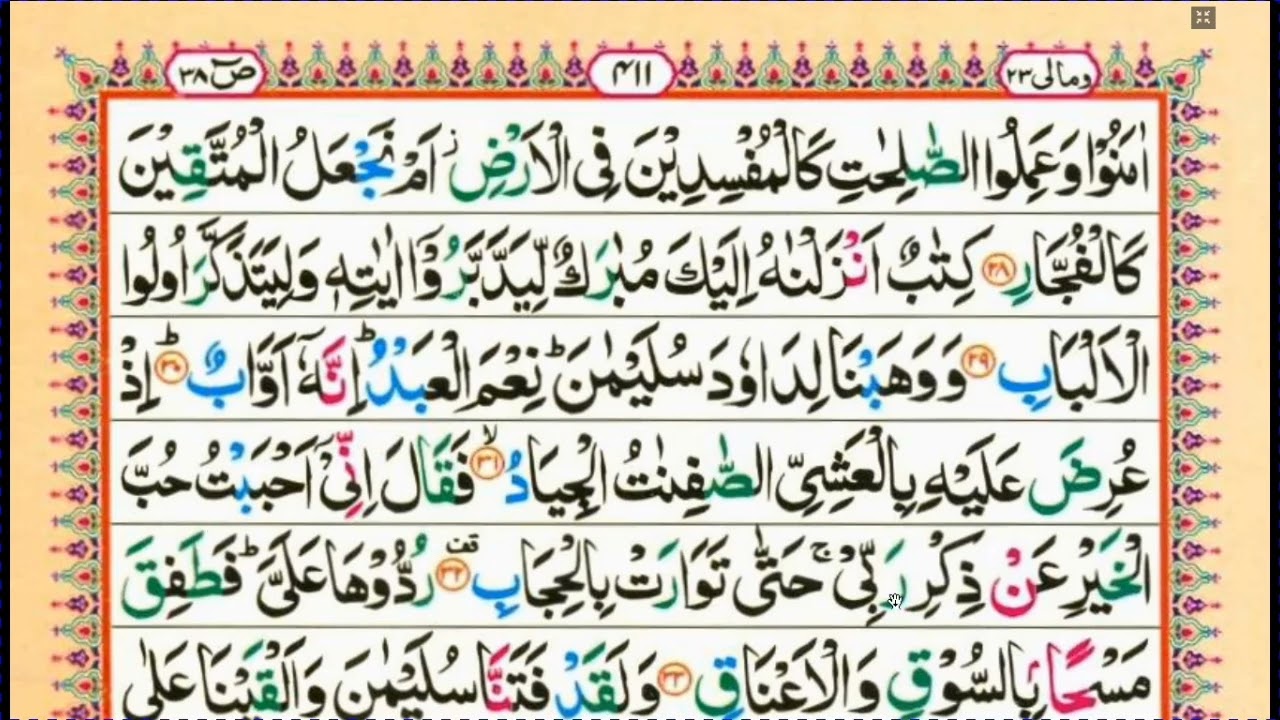 صٓ ٣٨
٤١١
ومالی ٢٣
اٰمَنُوْا وَعَمِلُوا الصّٰلِحٰتِ كَالْمُفْسِدِيْنَ فِى الْاَرْضِ ؗ اَمْ نَجْعَلُ الْمُتَّقِيْنَ
كَالْفُجَّارِ ﴿٢٨﴾ كِتٰبٌ اَنْزَلْنٰهُ اِلَيْكَ مُبٰرَكٌ لِّيَدَّبَّرُوْۤا اٰيٰتِهٖ وَلِيَتَذَكَّرَ اُولُوا
الْاَلْبَابِ ﴿٢٩﴾ وَوَهَبْنَا لِدَاوٗدَ سُلَيْمٰنَ ؕ نِعْمَ الْعَبْدُ ؕ اِنَّهٗۤ اَوَّابٌ ﴿٣٠﴾ؕ اِذْ
عُرِضَ عَلَيْهِ بِالْعَشِىِّ الصّٰفِنٰتُ الْجِيَادُ ﴿٣١﴾ۙ فَقَالَ اِنِّىْۤ اَحْبَبْتُ حُبَّ
الْخَيْرِ عَنْ ذِكْرِ رَبِّىْ ۚ حَتّٰى تَوَارَتْ بِالْحِجَابِ ﴿٣٢﴾ قف رُدُّوْهَا عَلَىَّ ؕ فَطَفِقَ
مَسْحًاۢ بِالسُّوْقِ وَالْاَعْنَاقِ ﴿٣٣﴾ وَلَقَدْ فَتَنَّا سُلَيْمٰنَ وَاَلْقَيْنَا عَلٰى